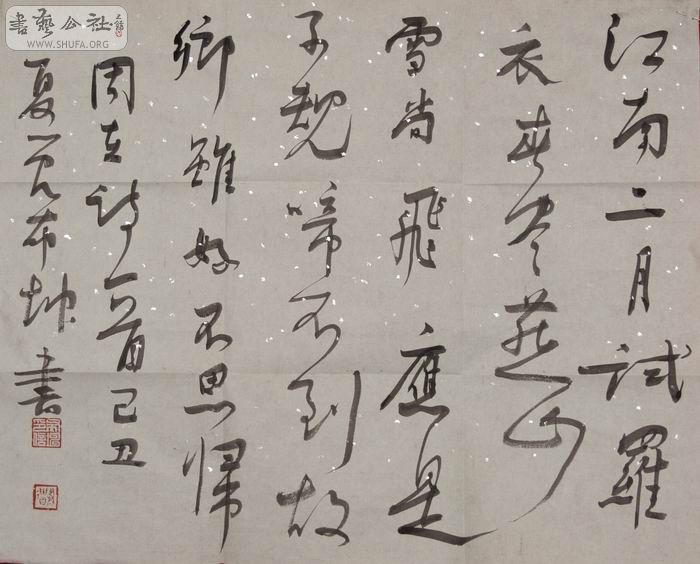 書藝公社
WWW.SHUFA.ORG
江南二月試羅
衣春尽燕山
雪尚飛應是
子規啼不到故
鄉雖好不思帰
周在詩一首己丑
夏布坤書